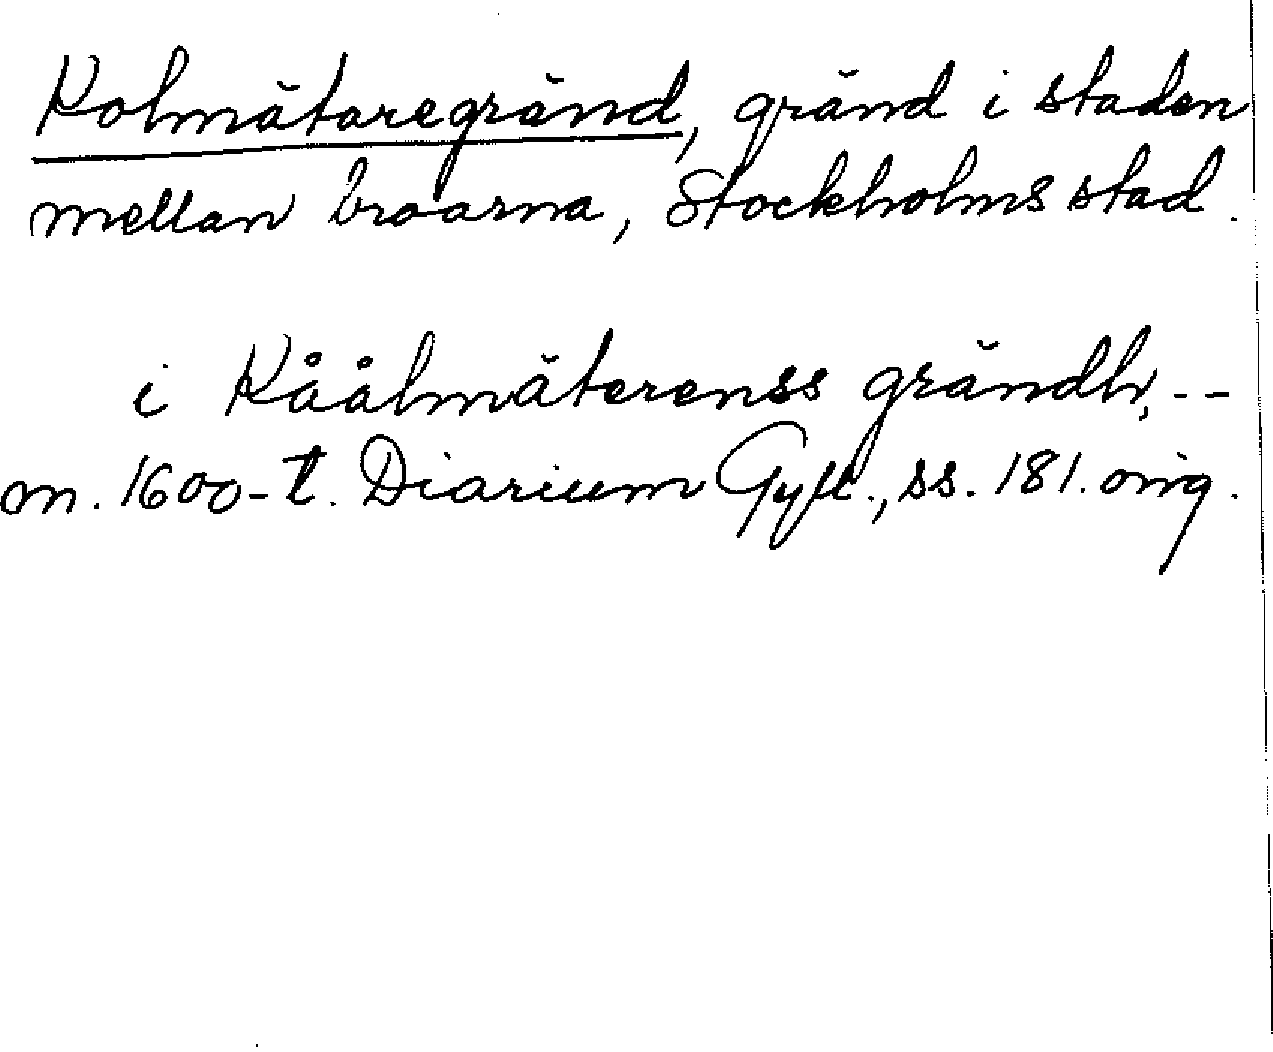 Kolmätaregränd, gränd i staden
mellan broarna, Stockholms stad.
i Kåålmäterenss grändh, --
m. 1600-t. Diarium Gyll., ss. 181. orig.